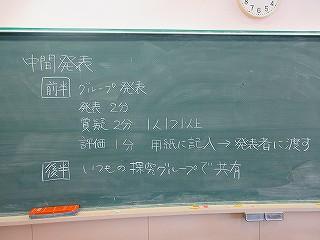 中間発表
前半 グループ発表
発表 2分
質疑 2分 1人1つ以上
評価 1分 用紙に記入→発表者に渡す
後半 いつもの探究グループで共有